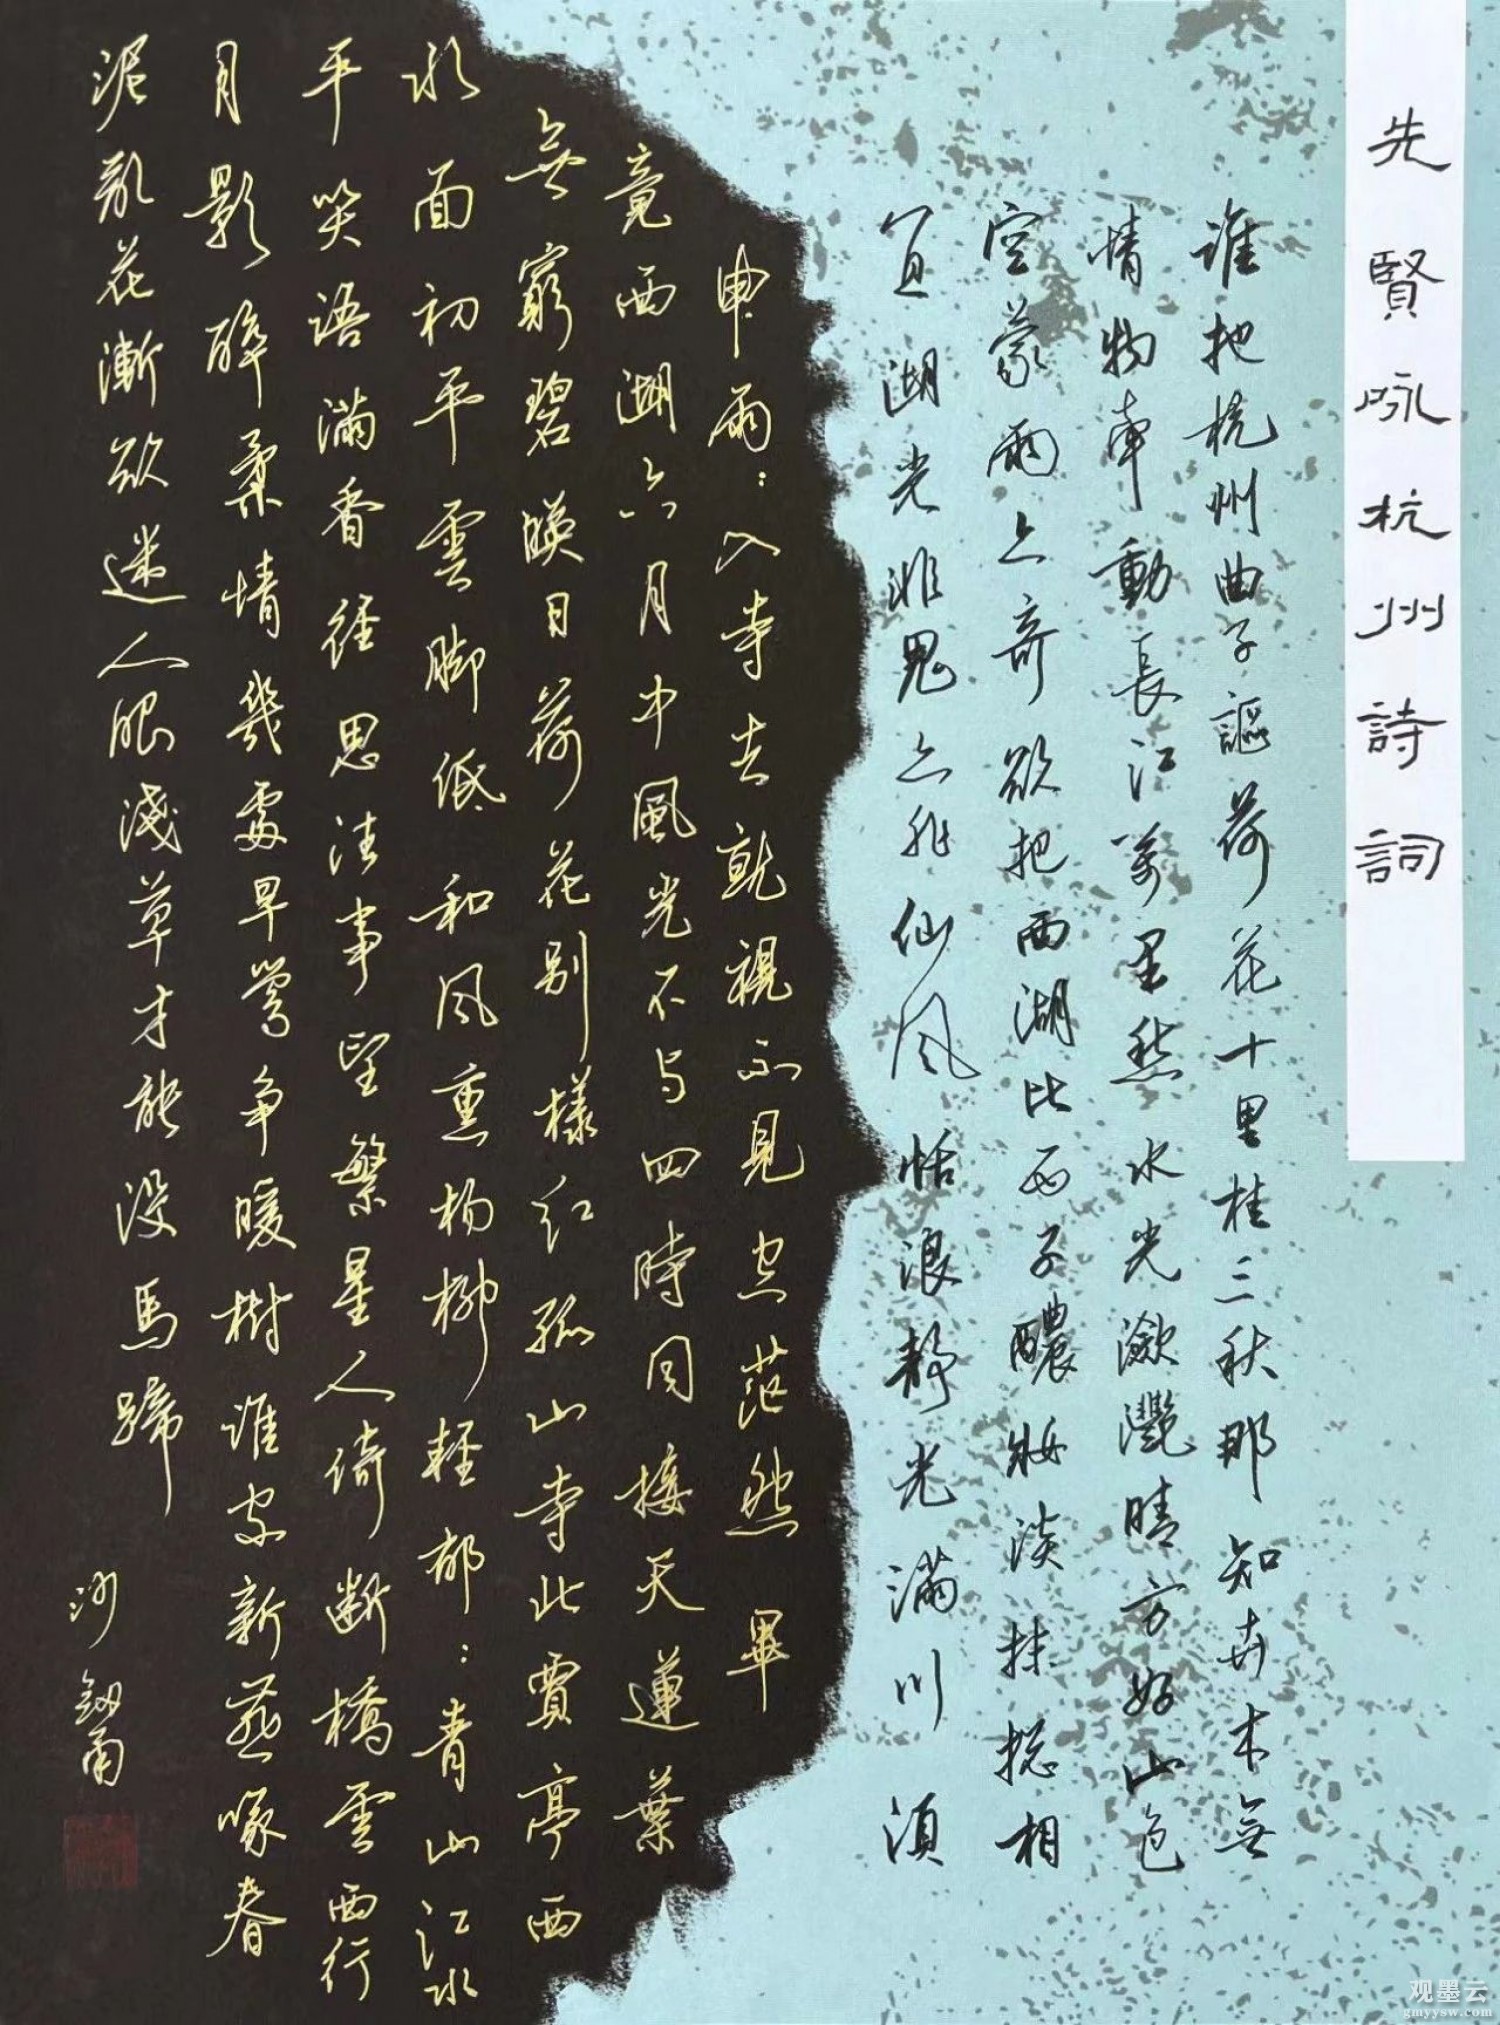 先賢咏杭州詩詞
谁把杭州曲子謳荷花十里桂三秋那知卉木無
情物牵動長江萬里愁水光潋灔晴方好山色
空蒙雨亦奇欲把西湖比西子醲妝淡抹総相
宜湖光非鬼亦非仙风恬浪静光满川須
臾兩:入寺去就視不見空茫然畢
竟西湖六月中風光不与四時同接天蓮葉
無窮碧暎日荷花别樣红孤山寺北賈亭西
水面初平雲脚低和风熏杨柳轻郁:青山江水
平笑语满香径思往事望繁星人倚断橋雲西行
月影醉柔情幾處早鶯争暖樹谁家新燕啄春
泥乱花漸欲迷人眼淺草才能没馬蹄
沙
观墨云
gmyysw.com